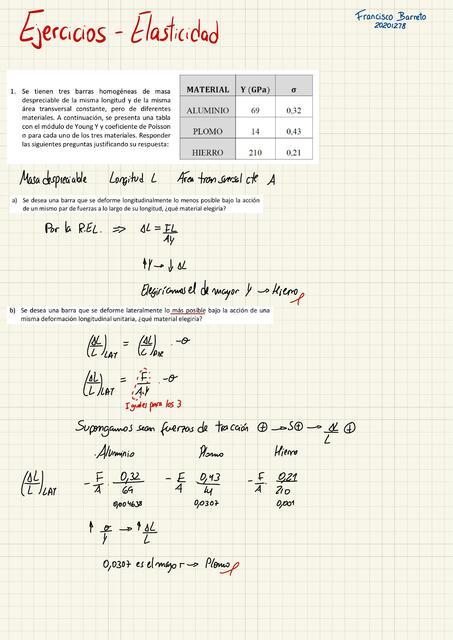 Ejercicios - Elasticidad
Francisco Barreto
20201278
1. Se tienen tres barras homogéneas de masa
despreciable de la misma longitud y de la misma
área transversal constante, pero de diferentes
materiales. A continuación, se presenta una tabla
con el módulo de Young Y y coeficiente de Poisson
σ para cada uno de los tres materiales. Responder
las siguientes preguntas justificando su respuesta:
MATERIAL Y (GPa) σ
ALUMINIO 69 0,32
PLOMO 14 0,43
HIERRO 210 0,21
Masa despreciable Longitud L Área transversal cte A
a) Se desea una barra que se deforme longitudinalmente lo menos posible bajo la acción
de un mismo par de fuerzas a lo largo de su longitud, ¿qué material elegiría?
Por la R.E.L. ⇒ ΔL = FL/AY
↑Y → ↓ ΔL
Elegiríamos el de mayor Y → Hierro
b) Se desea una barra que se deforme lateralmente lo más posible bajo la acción de una
misma deformación longitudinal unitaria, ¿qué material elegiría?
(ΔL/L)LAT = (ΔL/L)DIR . -σ
(ΔL/L)LAT = F/A.Y . -σ
Iguales para los 3
Supongamos sean fuerzas de tracción ⊕ → S⊕ → ΔL/L ⊕
Aluminio Plomo Hierro
(ΔL/L)LAT - F/A 0,32/69 - F/A 0,43/14 - F/A . 0,21/210
0,004638 0,0307 0,001
↑ σ/Y → ↑ ΔL/L
0,0307 es el mayor → Plomo